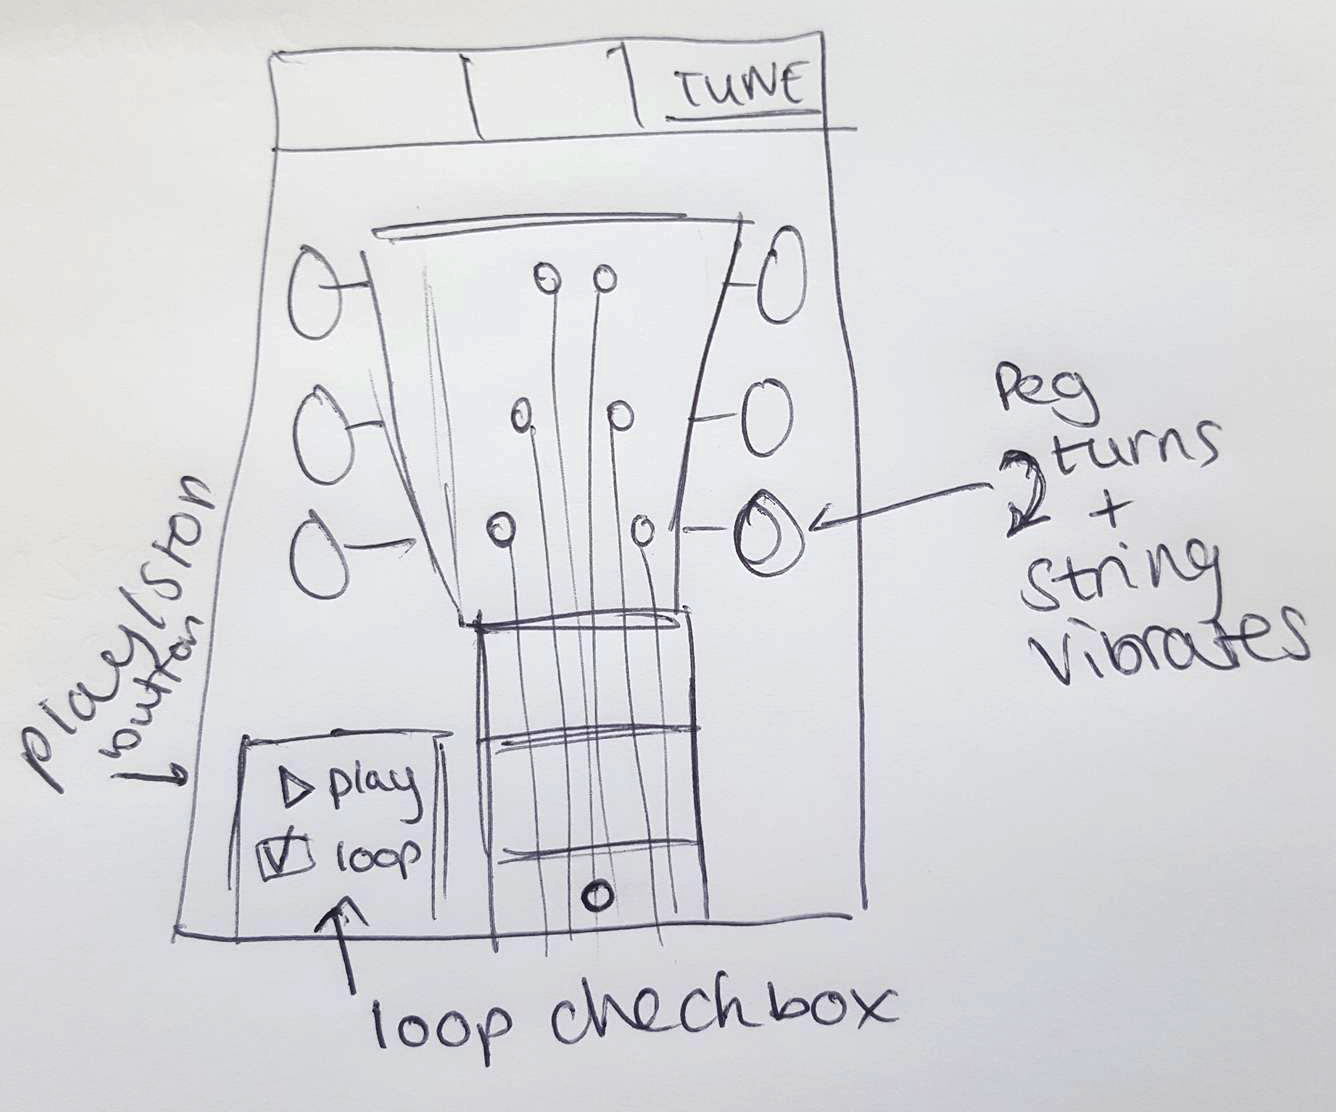 TUNE
Peg
turns
+
string
vibrates
play/stop
button
play
loop
loop checkbox